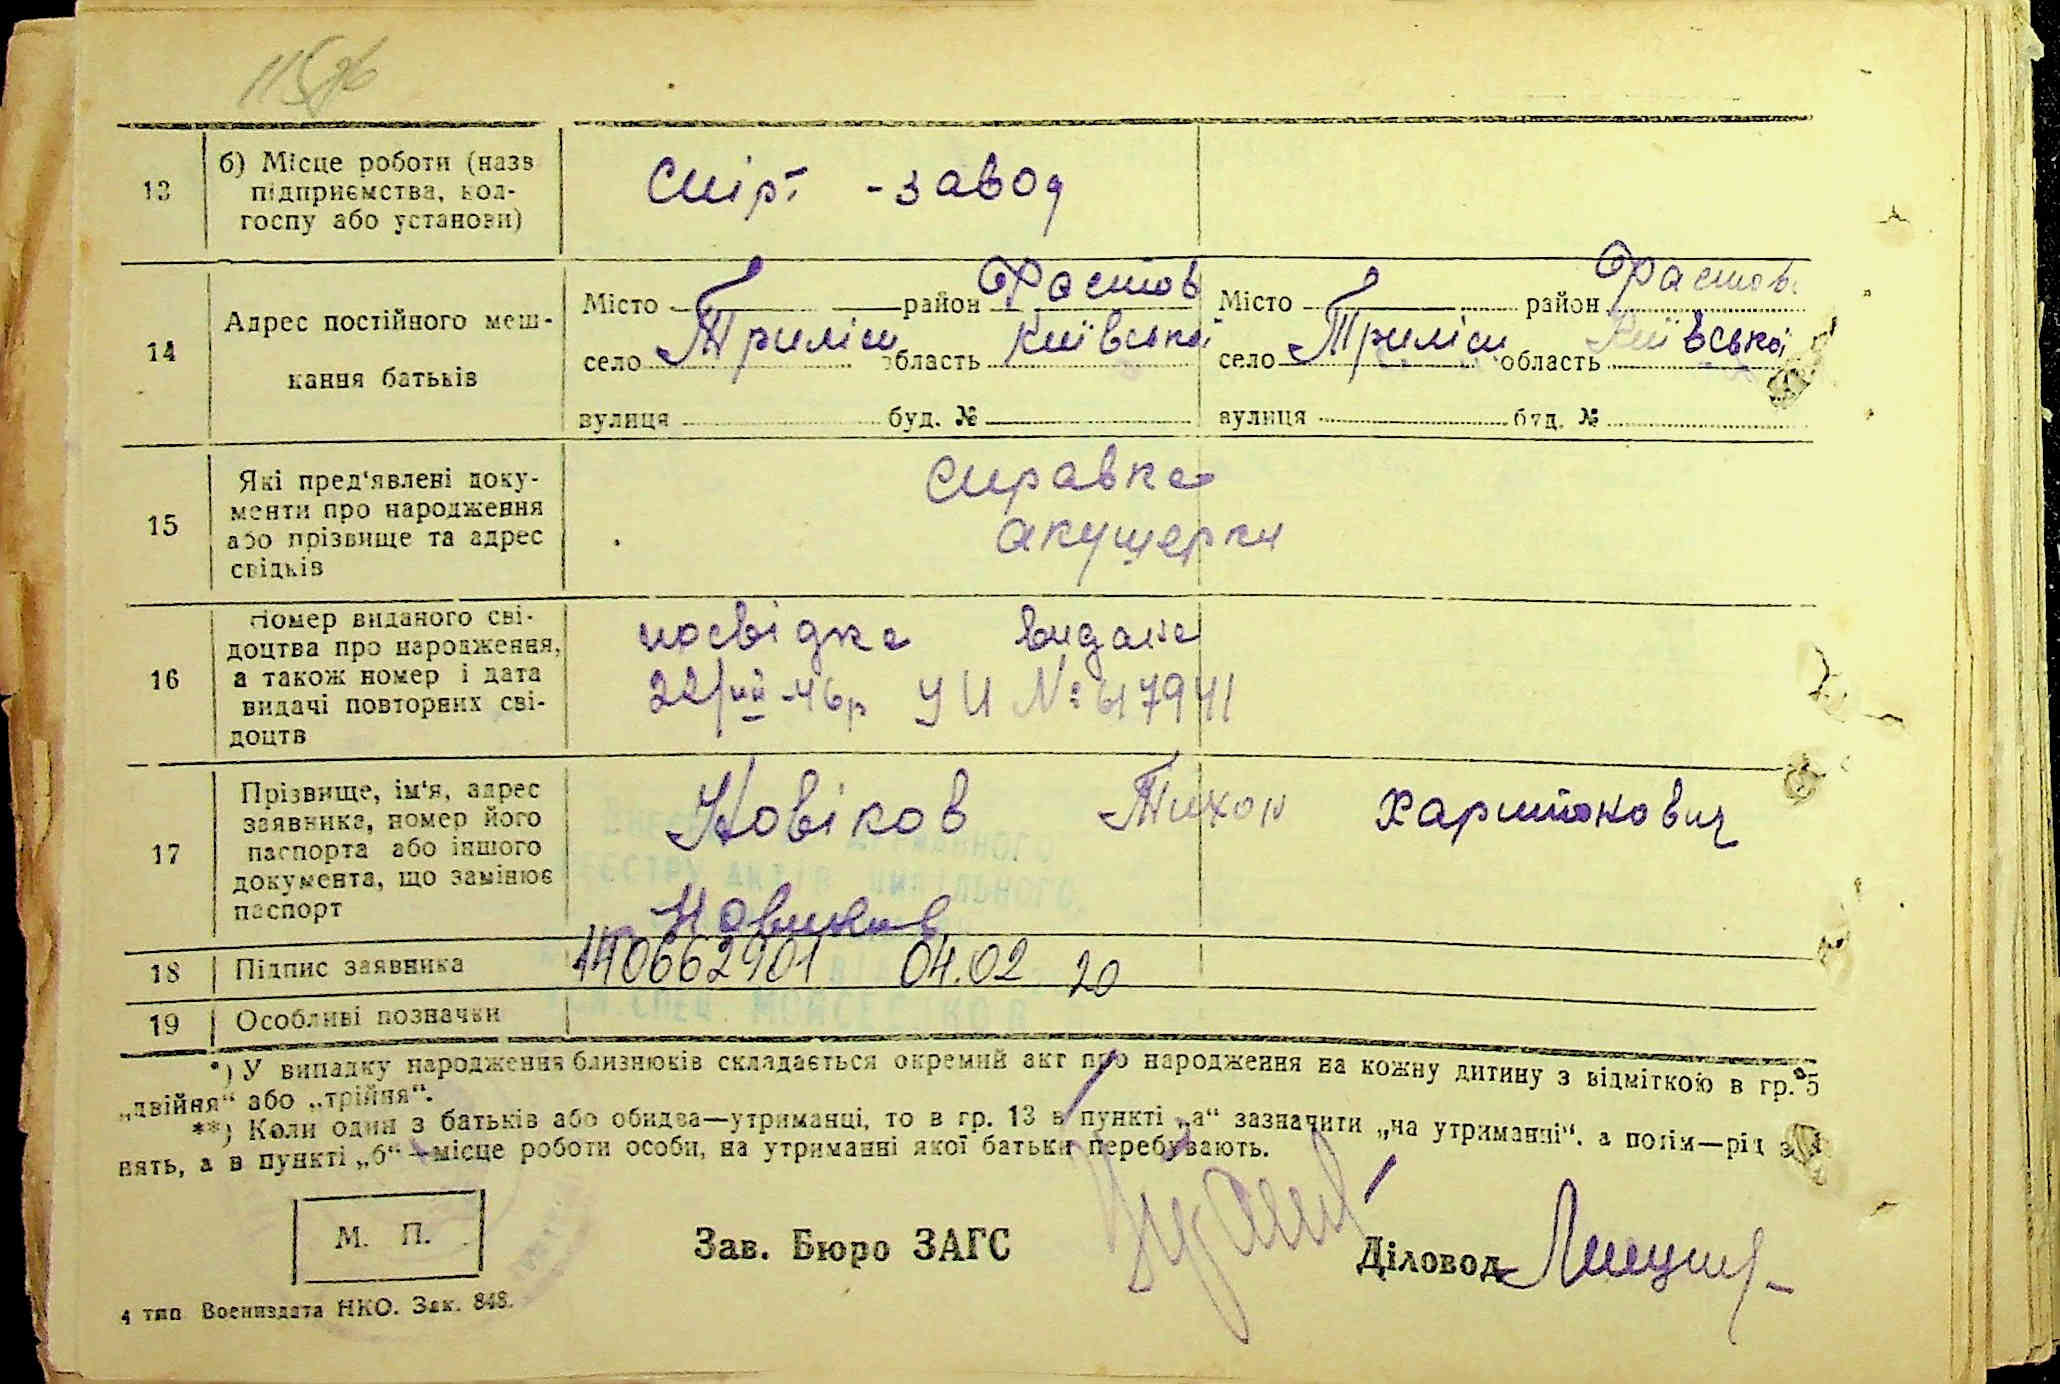 13 б) Місце роботи (назв
підприємства, кол-
госпу або установи)
Спірт - завод
14 Адрес постійного меш-
кання батьків
Місто район Фастов Місто район Фастов.
село Триліси область Київської село Триліси область Київської
вулиця буд. № вулиця буд. №
15 Які пред'явлені доку-
менти про народження
або прізвище та адрес
свідків
Справка
акушерки
16 Номер виданого сві-
доцтва про народження,
а також номер і дата
видачі повторних сві-
доцтв
посвідка видана
22/VII-46р УИ №
17 Прізвище, ім'я, адрес
заявника, номер його
паспорта або іншого
документа, що замінює
паспорт
Новіков Тихон Харитонович
Новиков
18 Підпис заявника 04.02 20
19 Особливі позначки
*) У випадку народження близнюків складається окремий акт про народження на кожну дитину з відміткою в гр. 5
„двійня“ або „трійня“.
**) Коли один з батьків або обидва—утриманці, то в гр. 13 в пункті „а“ зазначити „на утриманні“, а потім—рід за
нять, а в пункті „б“—місце роботи особи, на утриманні якої батьки перебувають.
М. П.
Зав. Бюро ЗАГС Діловод
4 тип Воениздата НКО. Зак. 848.